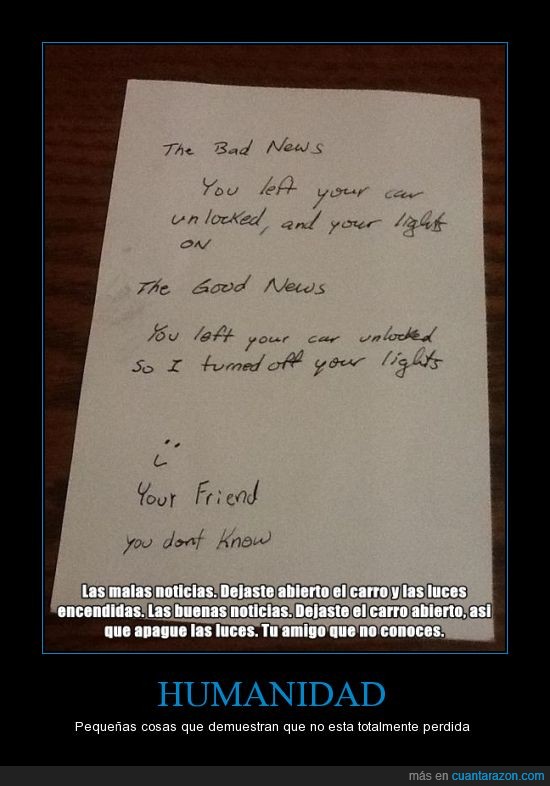 The Bad News
You left your car
unlocked, and your lights
ON
The Good News
You left your car unlocked
so I turned off your lights
Your Friend
you dont Know
Las malas noticias. Dejaste abierto el carro y las luces
encendidas. Las buenas noticias. Dejaste el carro abierto, asi
que apague las luces. Tu amigo que no conoces.
HUMANIDAD
Pequeñas cosas que demuestran que no esta totalmente perdida
más en cuantarazon.com